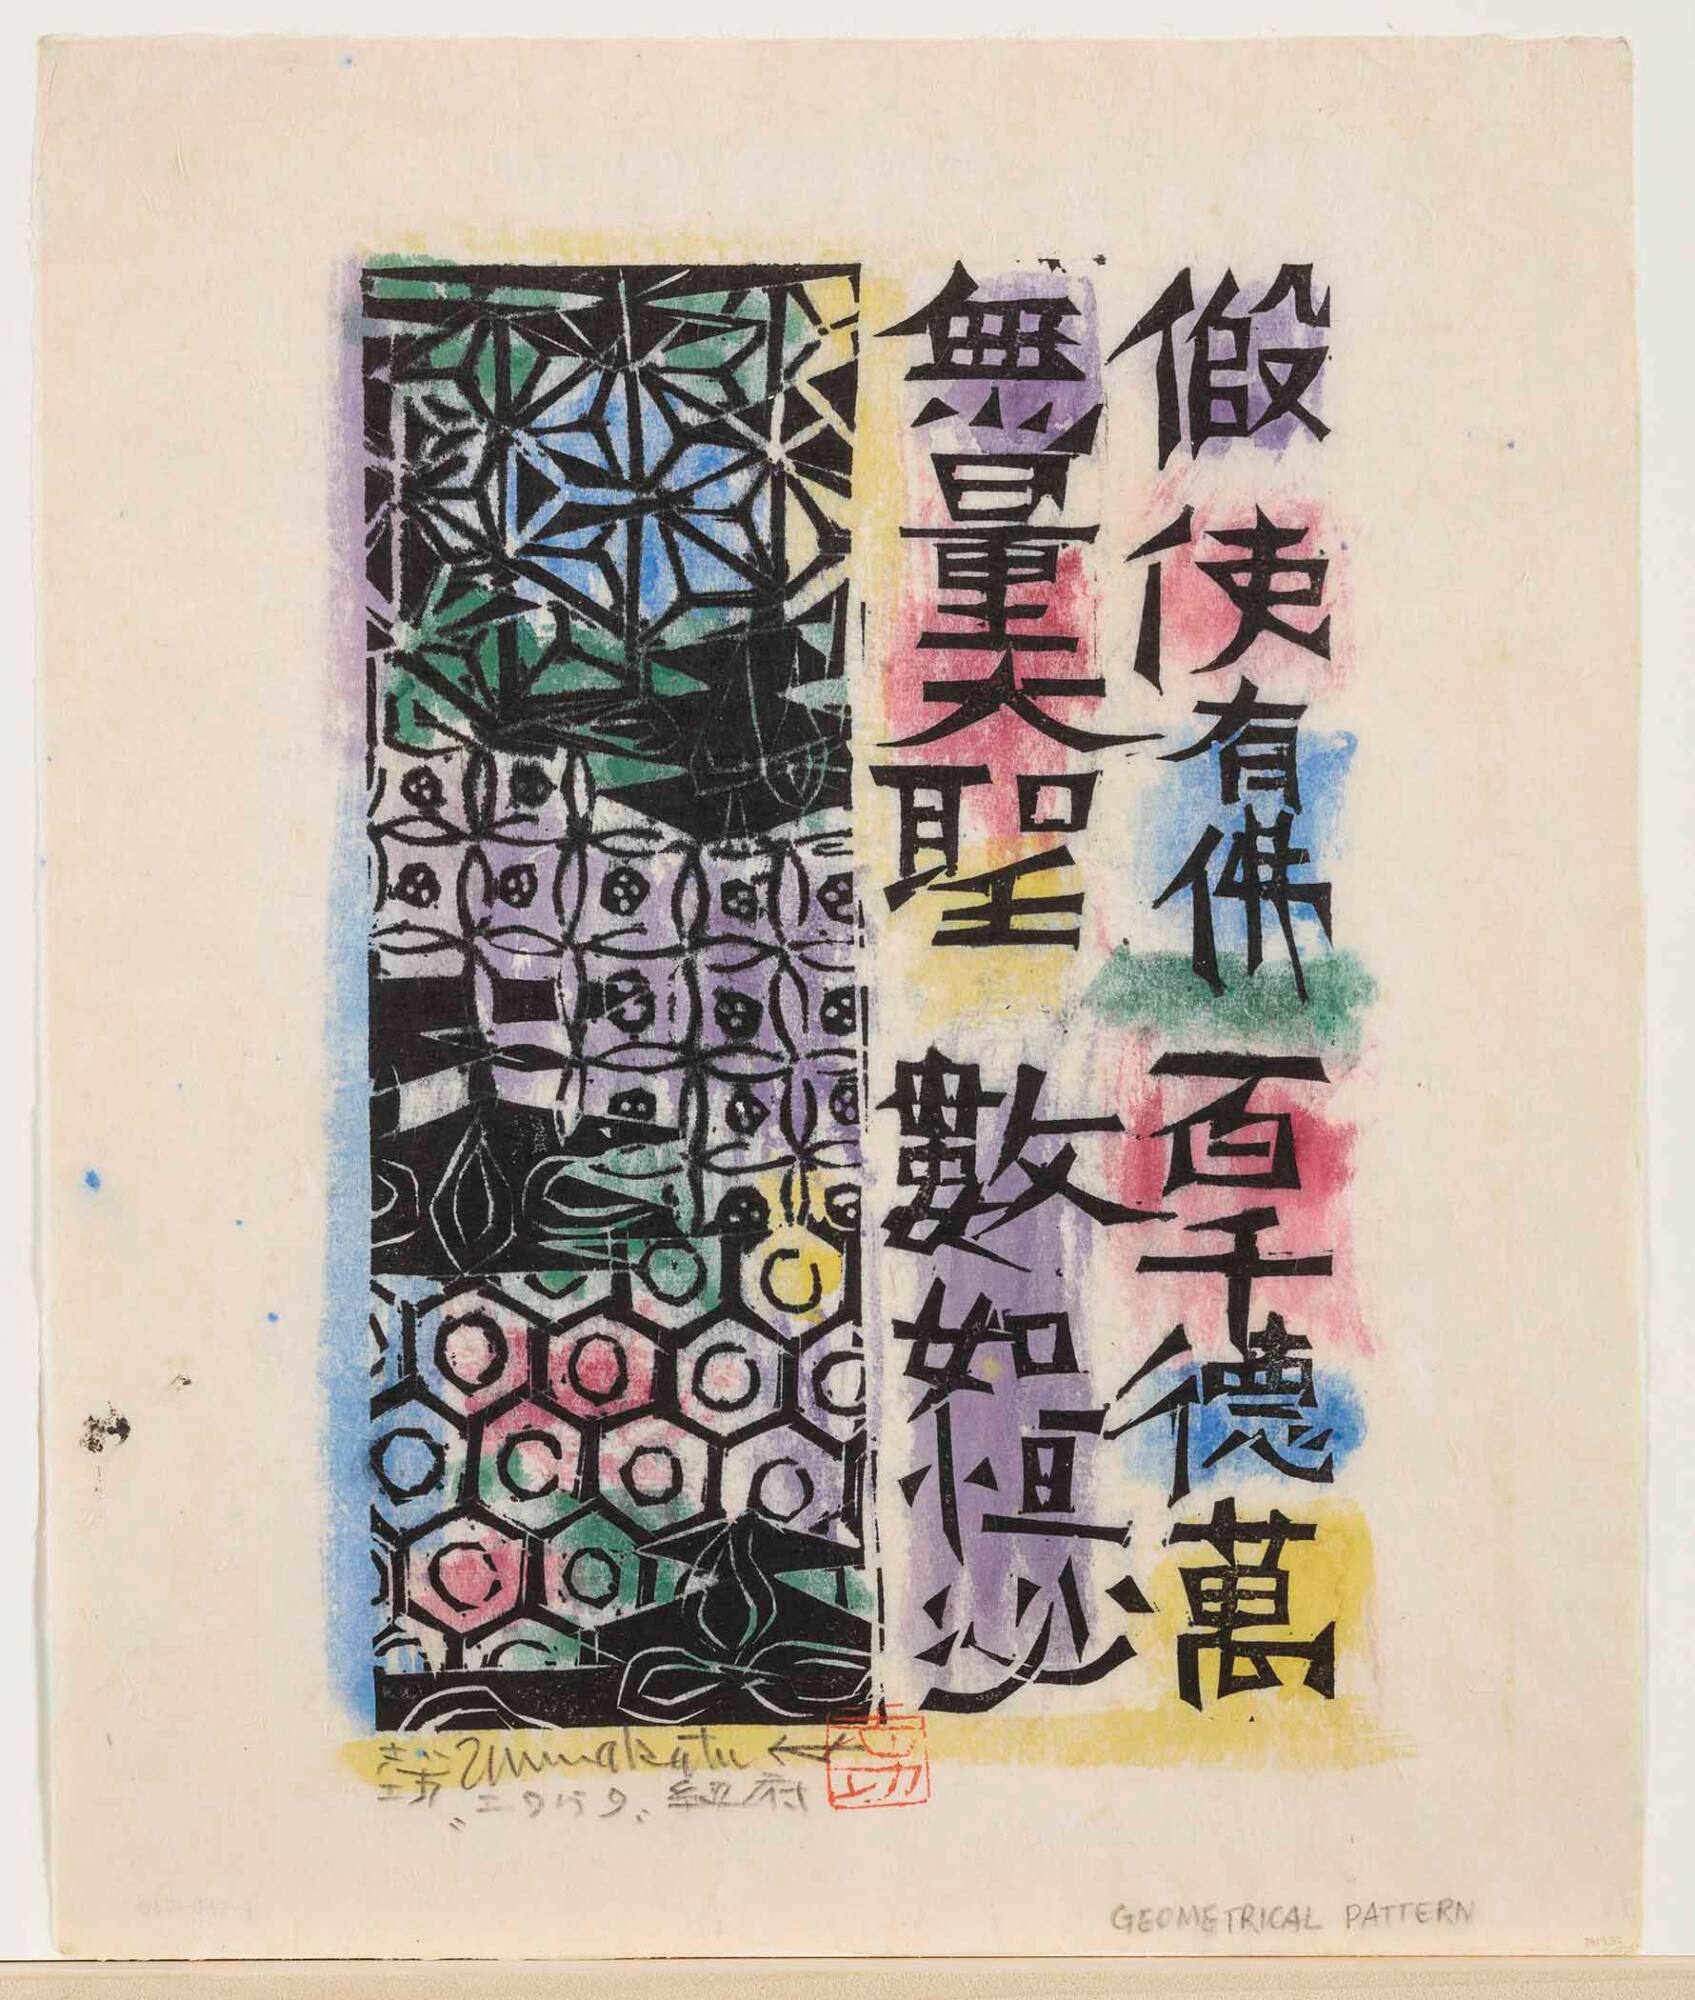 假使有佛百千德萬
無量大聖數如恒沙
Munakata
紐府
GEOMETRICAL PATTERN